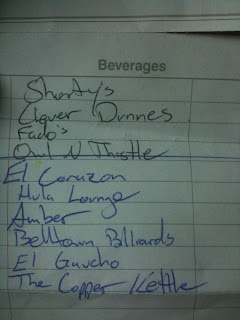 Beverages
Shorty's
Clever Dunnes
Fado's
Owl N Thistle
El Corazon
Hula Lounge
Amber
Belltown Billiards
El Gaucho
The Copper Kettle